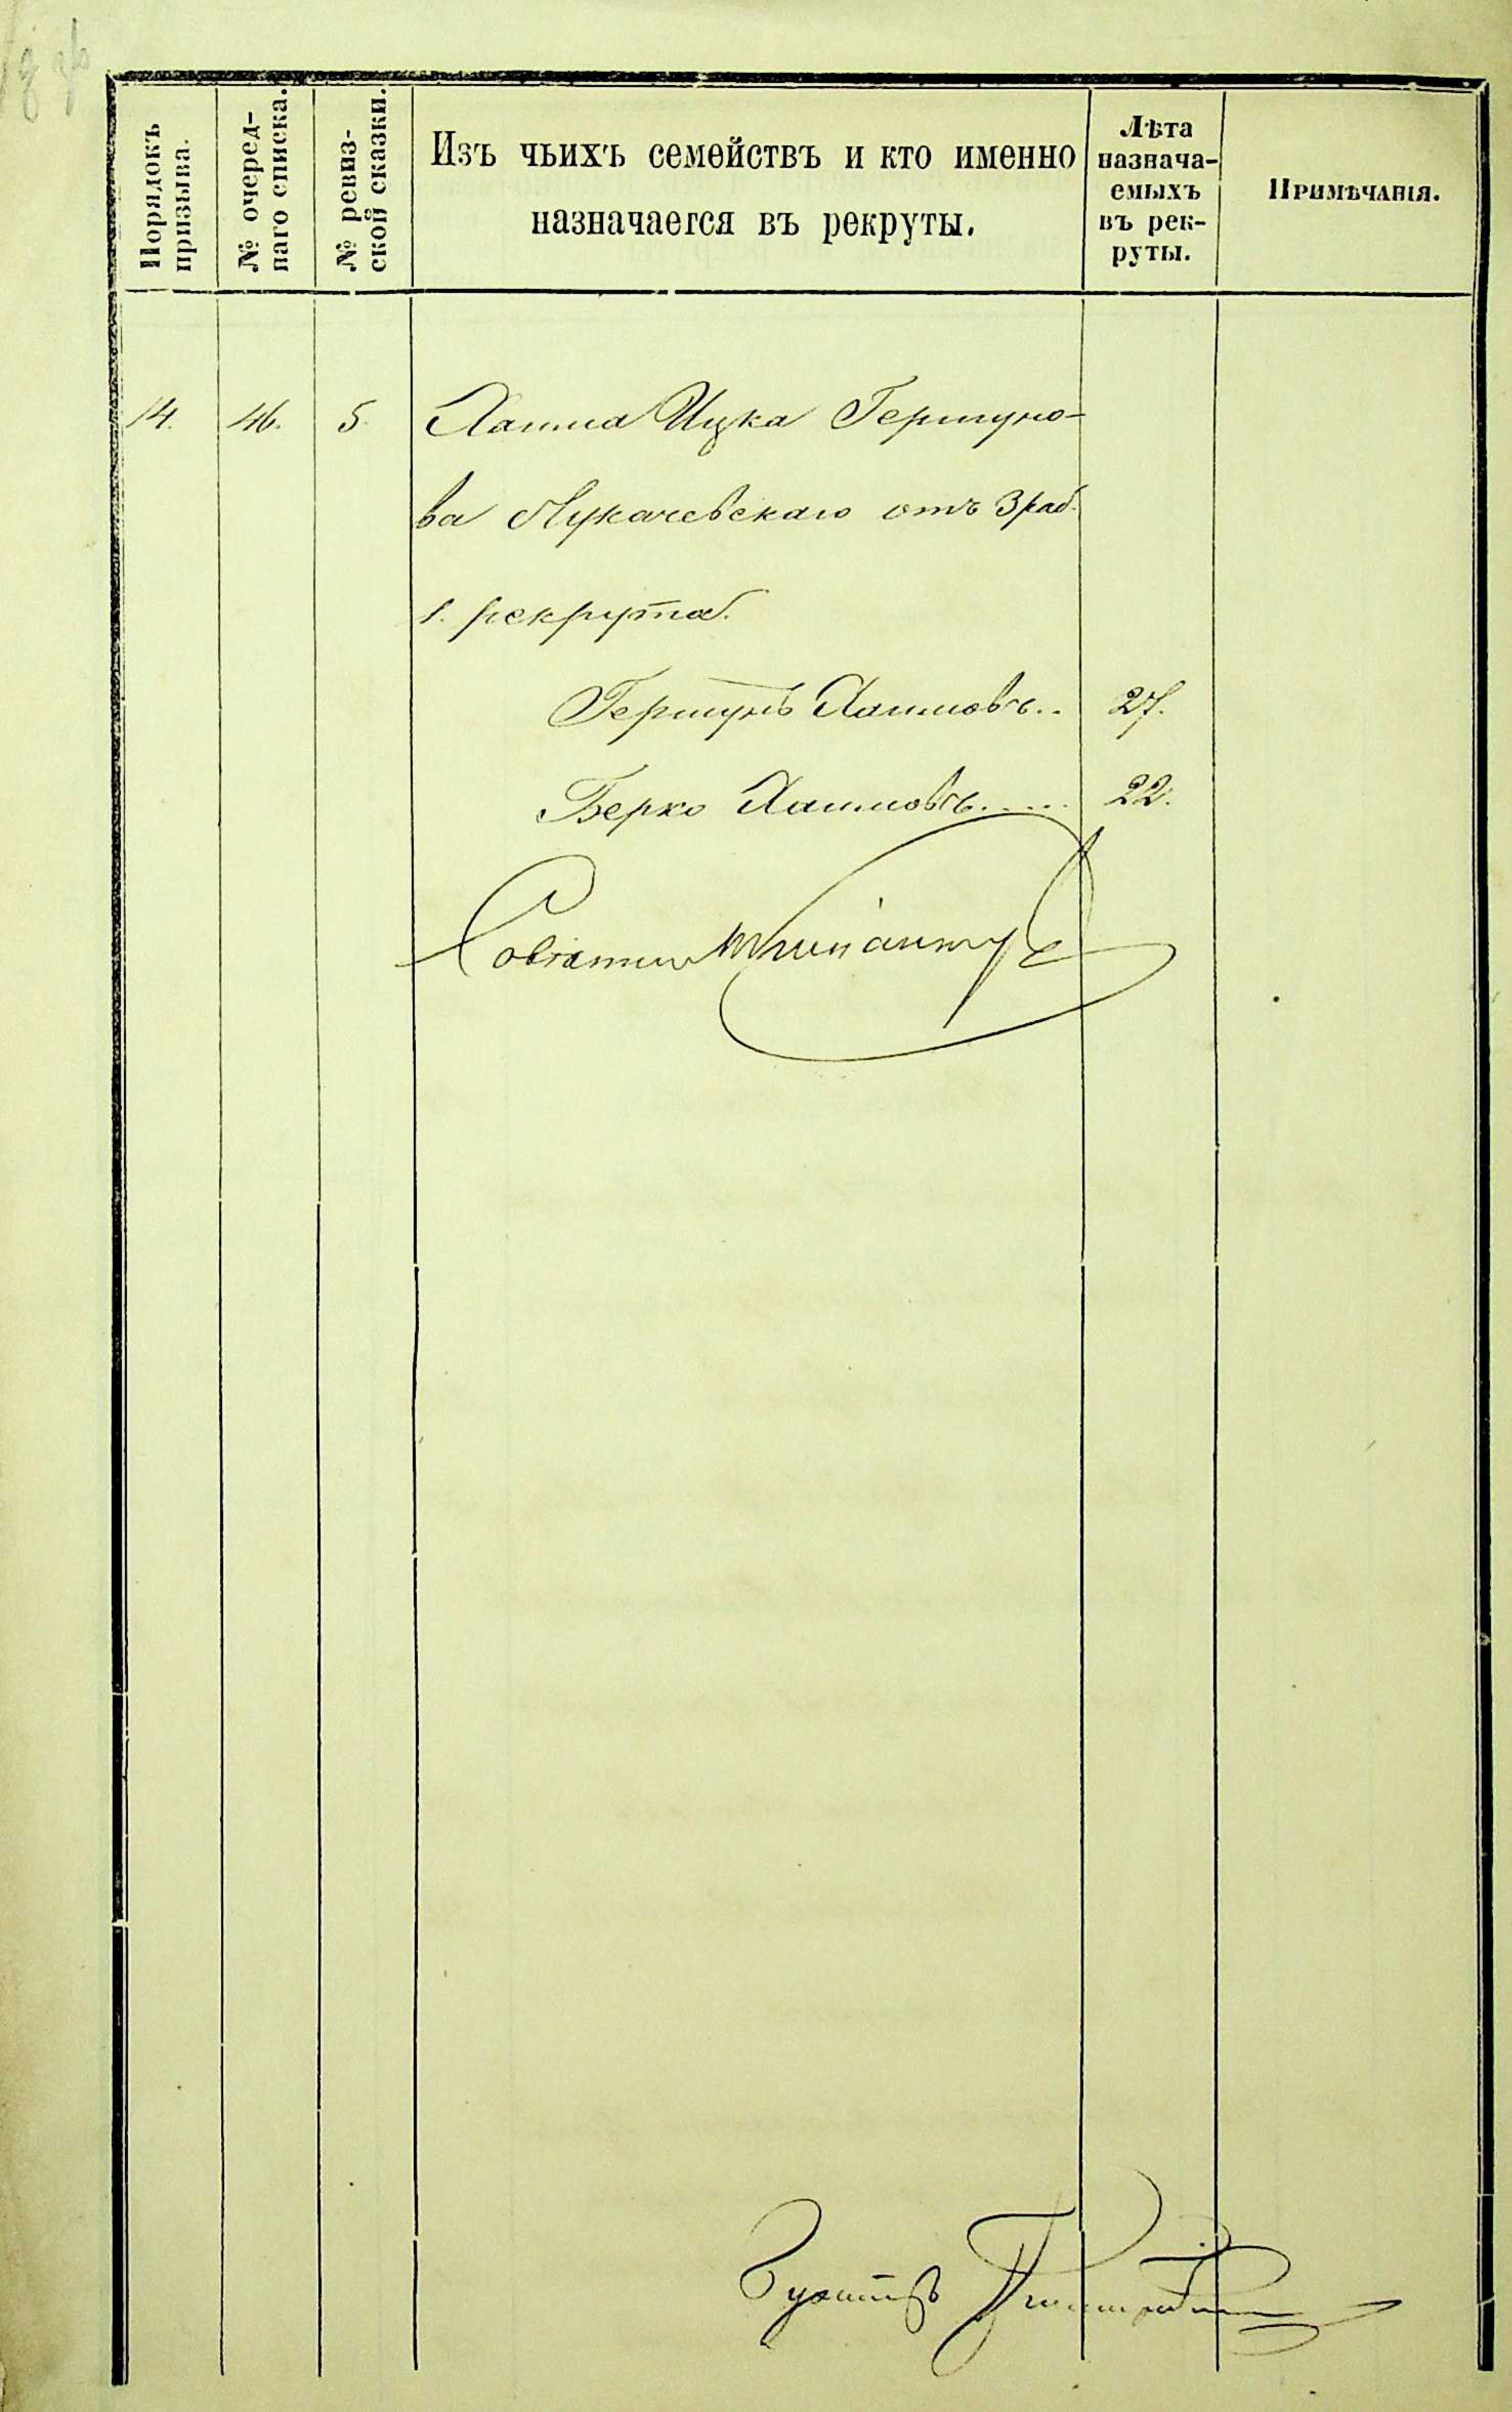 Порядокъ
призыва.
№ очеред-
наго списка.
№ ревиз-
ской сказки.
Изъ чьихъ семействъ и кто именно
назначается въ рекруты.
Лѣта
назнача-
емыхъ
въ рек-
руты.
Примѣчанія.
14. 46. 5. Хаима Ицка Гершуно-
ва Мукачевскаго отъ 3 раб.
1. рекрута.
Гершунъ Хаимовъ.. 27.
Берко Хаимовъ..... 22.
Совѣтникъ
Бухгалтеръ